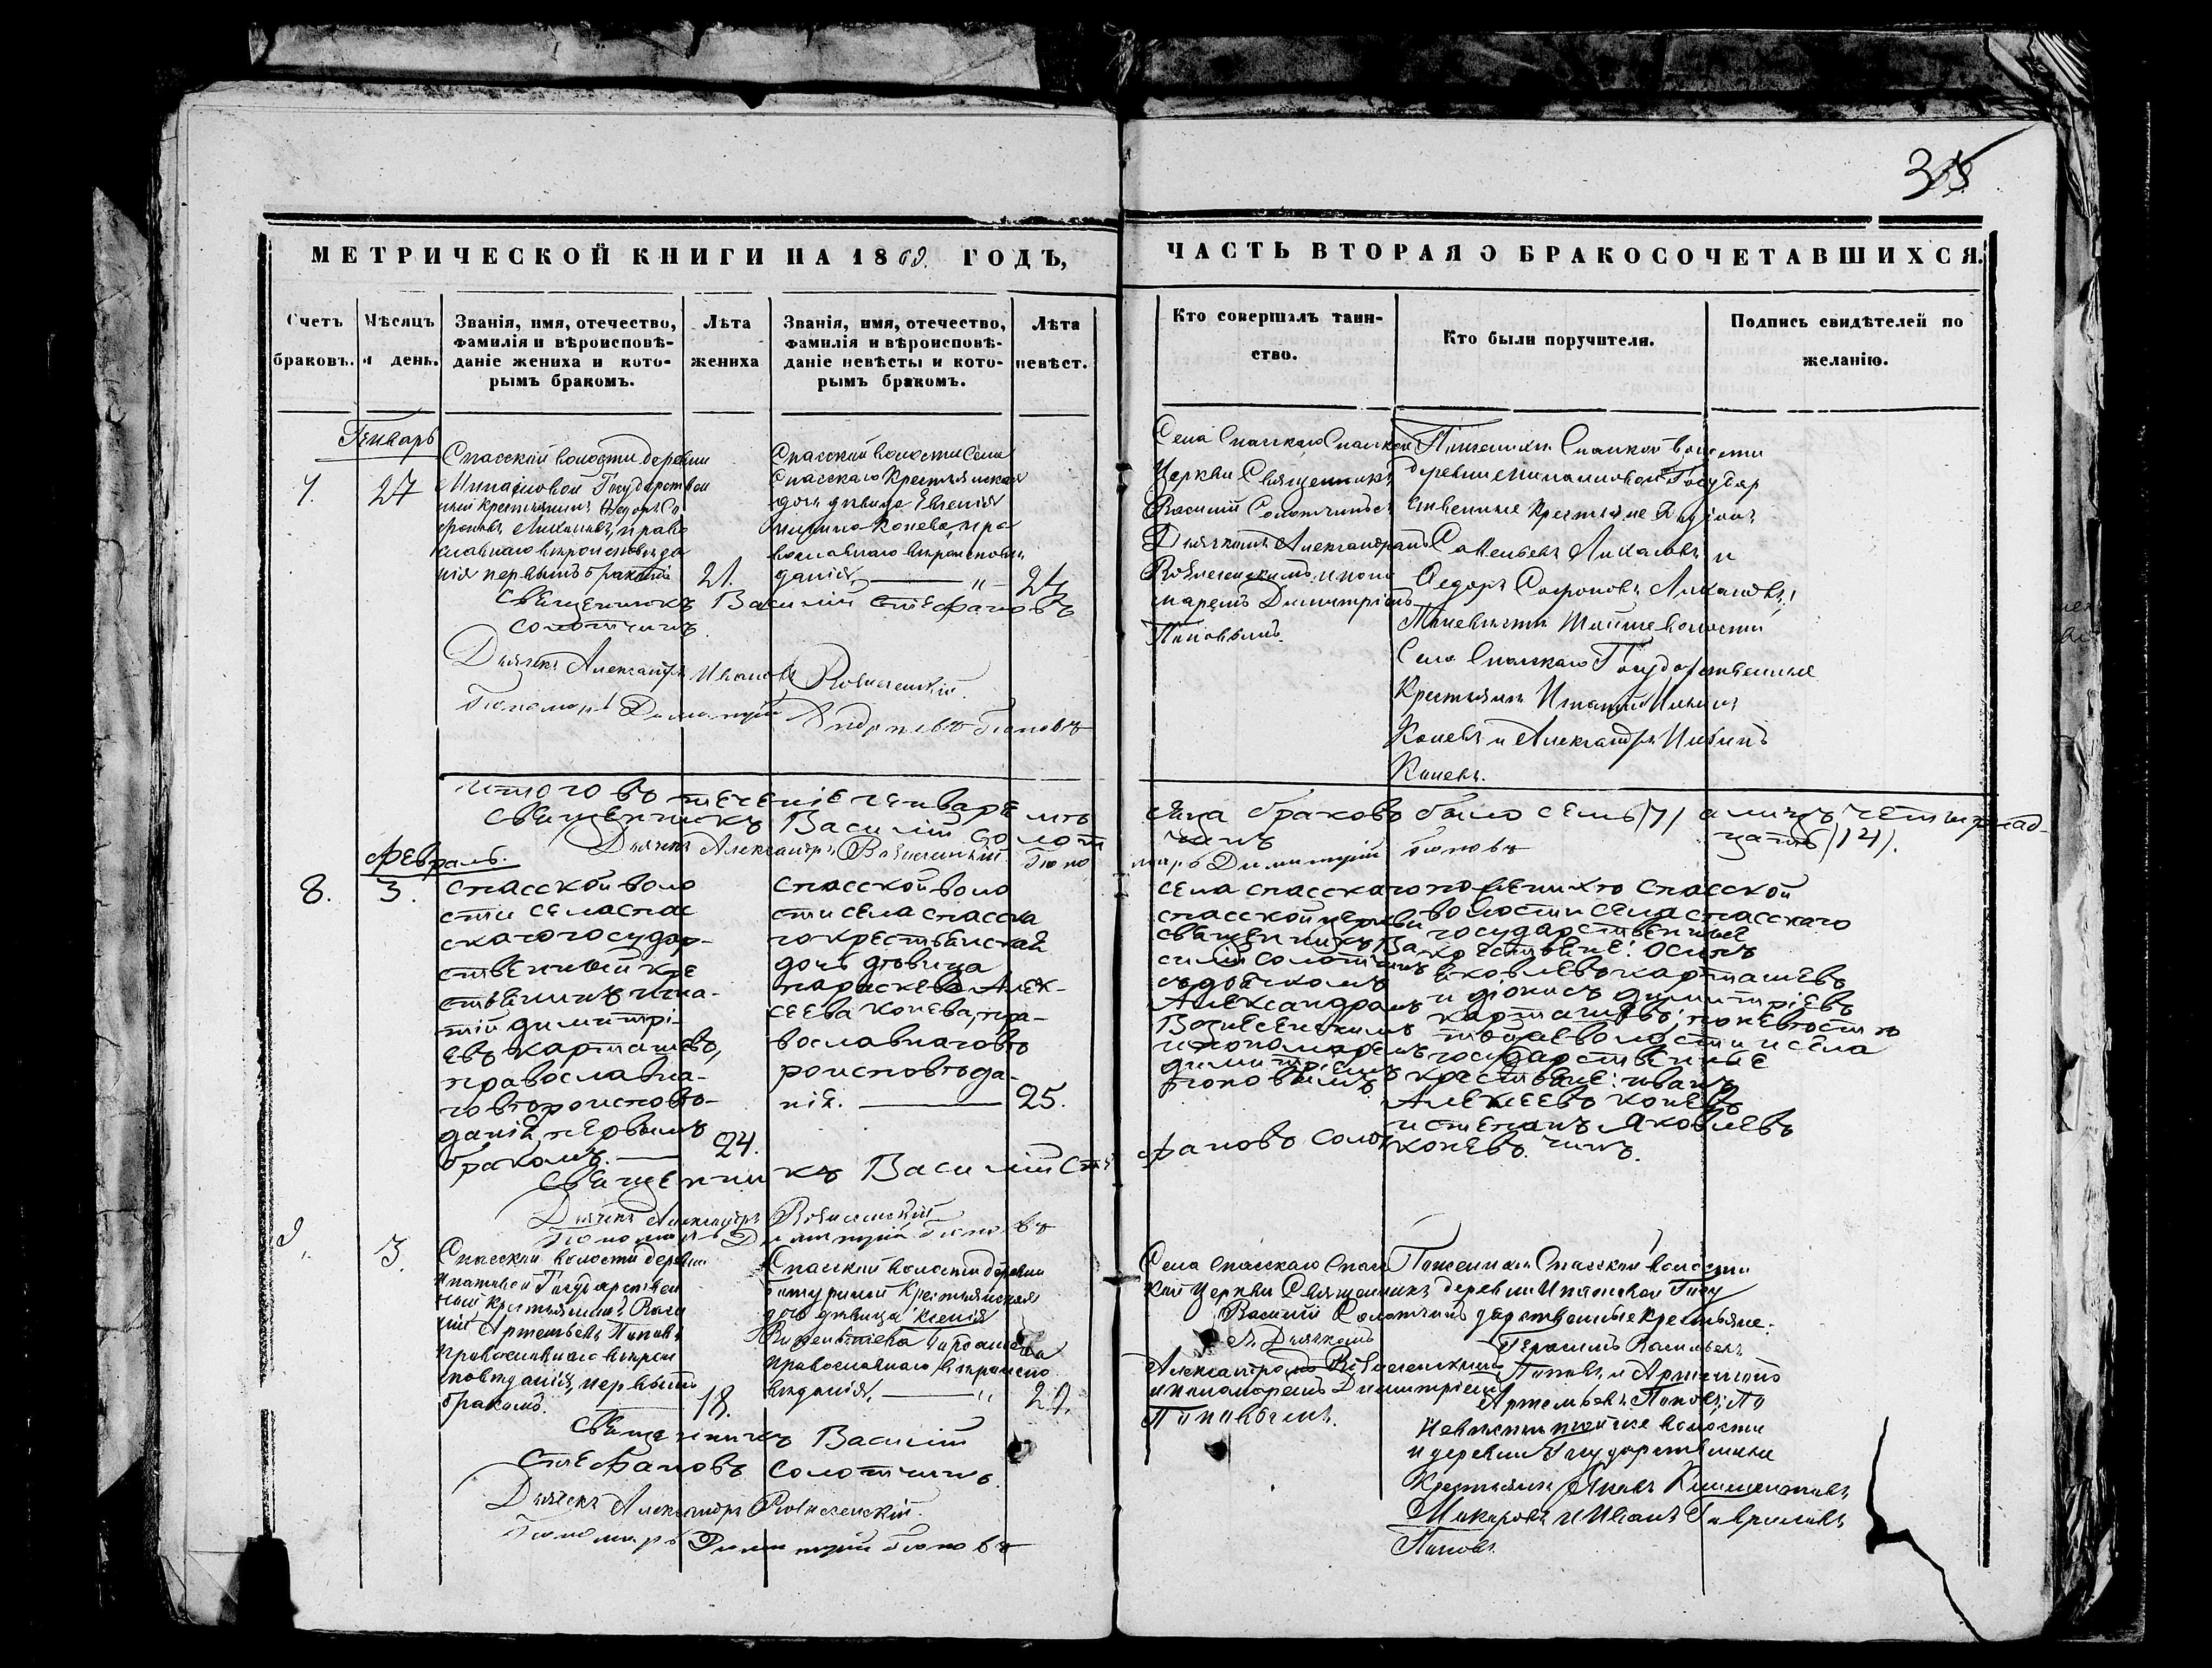 МЕТРИЧЕСКОЙ КНИГИ НА 1869. ГОДЪ,
ЧАСТЬ ВТОРАЯ О БРАКОСОЧЕТАВШИХСЯ.
Счетъ браковъ.
Мѣсяцъ и день.
Званія, имя, отечество,
фамилія и вѣроисповѣ-
даніе жениха и кото-
рымъ бракомъ.
Лѣта
жениха
Званія, имя, отечество,
фамилія и вѣроисповѣ-
даніе невѣсты и кото-
рымъ бракомъ.
Лѣта
невѣст.
Кто совершалъ таин-
ство.
Кто были поручители.
Подпись свидѣтелей по
желанію.
Генварь
7.
27
Спасской волости деревни
Государствен
ный крестьянинъ Ѳедоръ Со
фроновъ право
славнаго вѣроисповѣда
нія первымъ бракомъ
21.
Спасской волости села
Спасскаго крестьянская
дочь дѣвица Евгенія
Конева, пра
вославнаго вѣроисповѣ
данія,
Села Спасскаго Спасской
Церкви Священникъ
Василій Солотчинъ съ
Дьячкомъ Александромъ
Вознесенскимъ и поно
маремъ Димитріемъ
Поповымъ.
По женихѣ Спасской волости
деревни Государ
ственные крестьяне
и
Ѳедоръ Софроновъ
По невѣстѣ той же волости
Села Спасскаго Государственные
Крестьяне Игнатій
Коневъ и Александръ
Коневъ.
Священникъ Василій Стефановъ
Солотчинъ.
Дьячекъ Александръ Ивановъ Вознесенскій
Пономарь Димитрій Андреевъ Поповъ
Итого въ теченіе генваря мѣ
сяца браковъ было семь (7) а лицъ четырнад-
цать (14).
Священникъ Василій Солот
чинъ
Дьячекъ Александръ Вознесенскій Поно
марь Димитрій Поповъ
Февраль.
8.
3.
спасской воло
сти села спас
скаго государ-
ственный кре
стьянинъ игна-
тій димитрі-
евъ карташевъ,
православна-
го вѣроисповѣ-
данія, первымъ
бракомъ.
24.
спасской воло
сти села спасска
го крестьянская
дочь дѣвица
параскева Алек-
сеева конева, пра-
вославнаго вѣ
роисповѣда-
нія.
25.
села спасскаго
спасской церкви
священникъ Ва
силій солотчинъ
съ дьячкомъ
Александромъ
Вознесенскимъ
и пономаремъ
димитріемъ
поповымъ
по женихѣ спасской
волости села спасскаго
государственные
крестьяне: осипъ
яковлевъ карташевъ
и діонисъ димитріевъ
карташевъ; по невѣстѣ
той же волости и села
государственные
крестьяне: иванъ
Алексеевъ коневъ
и степанъ Яковлевъ
коневъ.
Священникъ Василій Сте
фановъ Солотчинъ.
Дьячекъ Александръ Вознесенскій
Пономарь Димитрій Поповъ
9.
3.
Спасской волости деревни
Государствен
ный крестьянинъ Васи
лій Артемьевъ Поповъ
православнаго вѣроис
повѣданія, первымъ
бракомъ.
18.
Спасской волости деревни
крестьянская
дочь дѣвица Ксенія
православнаго вѣроиспо
вѣданія,
Села Спасскаго Спас
кой Церкви Священникъ
Василій Солотчинъ
съ Дьячкомъ
Александромъ Вознесенскимъ
и пономаремъ Димитріемъ
Поповымъ.
По женихѣ Спасской волости
деревни Госу
дарственные крестьяне:
Герасимъ Васильевъ
Поповъ и
Артемьевъ Поповъ; По
невѣстѣ той же волости
и деревни Государственные
Крестьяне Яковъ
Макаровъ и Иванъ Гавриловъ
Поповъ.
Священникъ Василій
Стефановъ Солотчинъ.
Дьячекъ Александръ Вознесенскій.
Пономарь Димитрій Поповъ